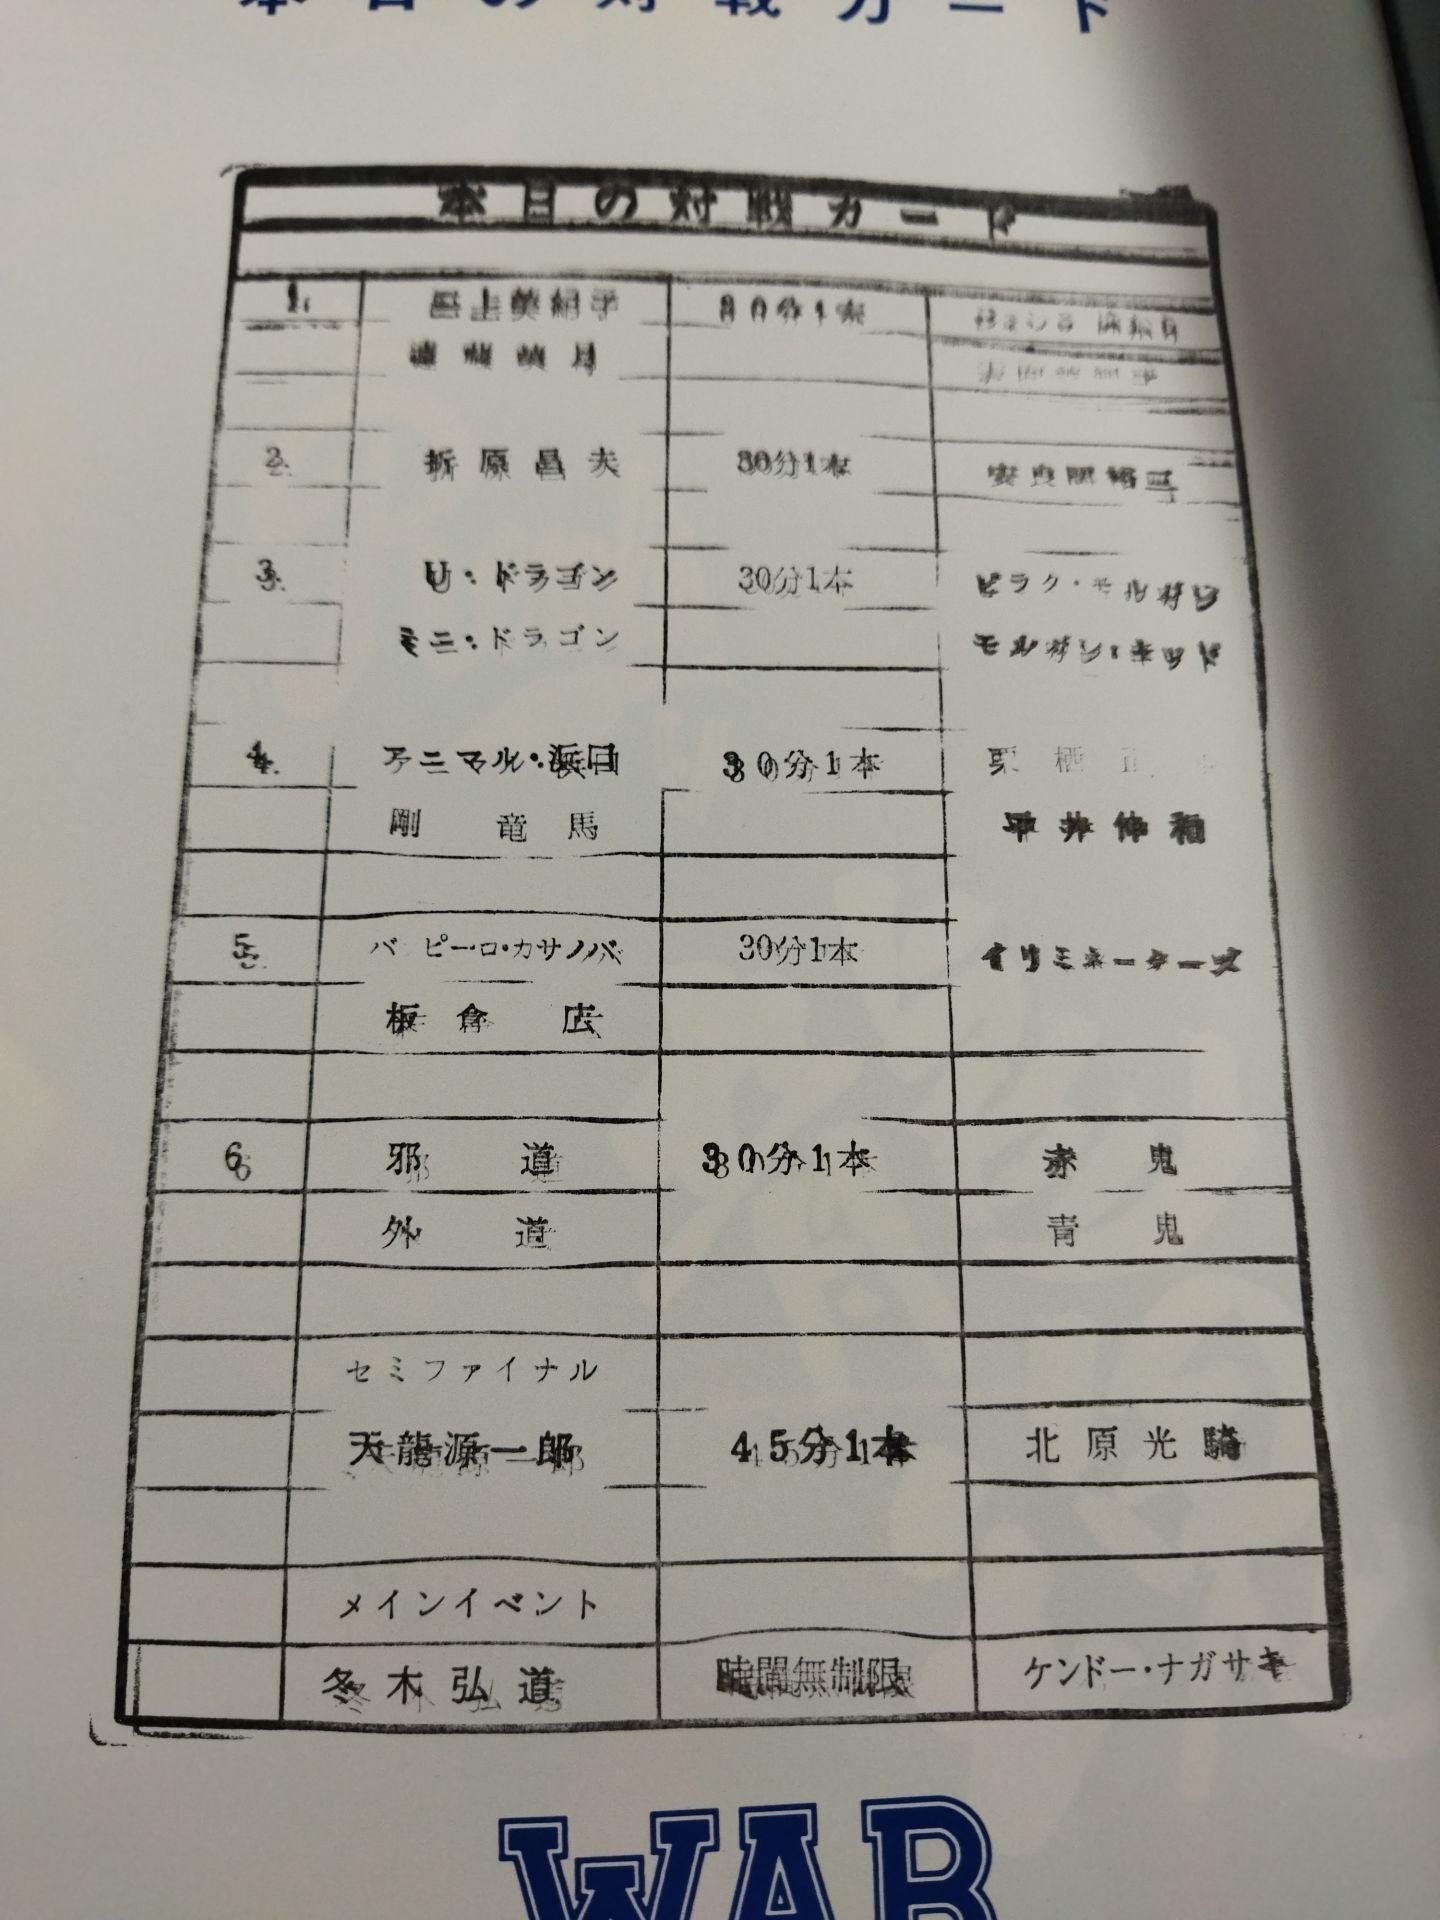 本日の対戦カード
本日の対戦カード
1. 30分1本
2. 折原昌夫 30分1本 安良岡裕二
3. U・ドラゴン 30分1本
ミニ・ドラゴン モルガン・キッド
4. アニマル・浜口 30分1本 栗栖正
剛竜馬 平井伸和
5. バピーロ・カサノバ 30分1本 イリミネーターズ
板倉広
6. 邪道 30分1本 赤鬼
外道 青鬼
セミファイナル
天龍源一郎 45分1本 北原光騎
メインイベント
冬木弘道 時間無制限 ケンドー・ナガサキ
WAR